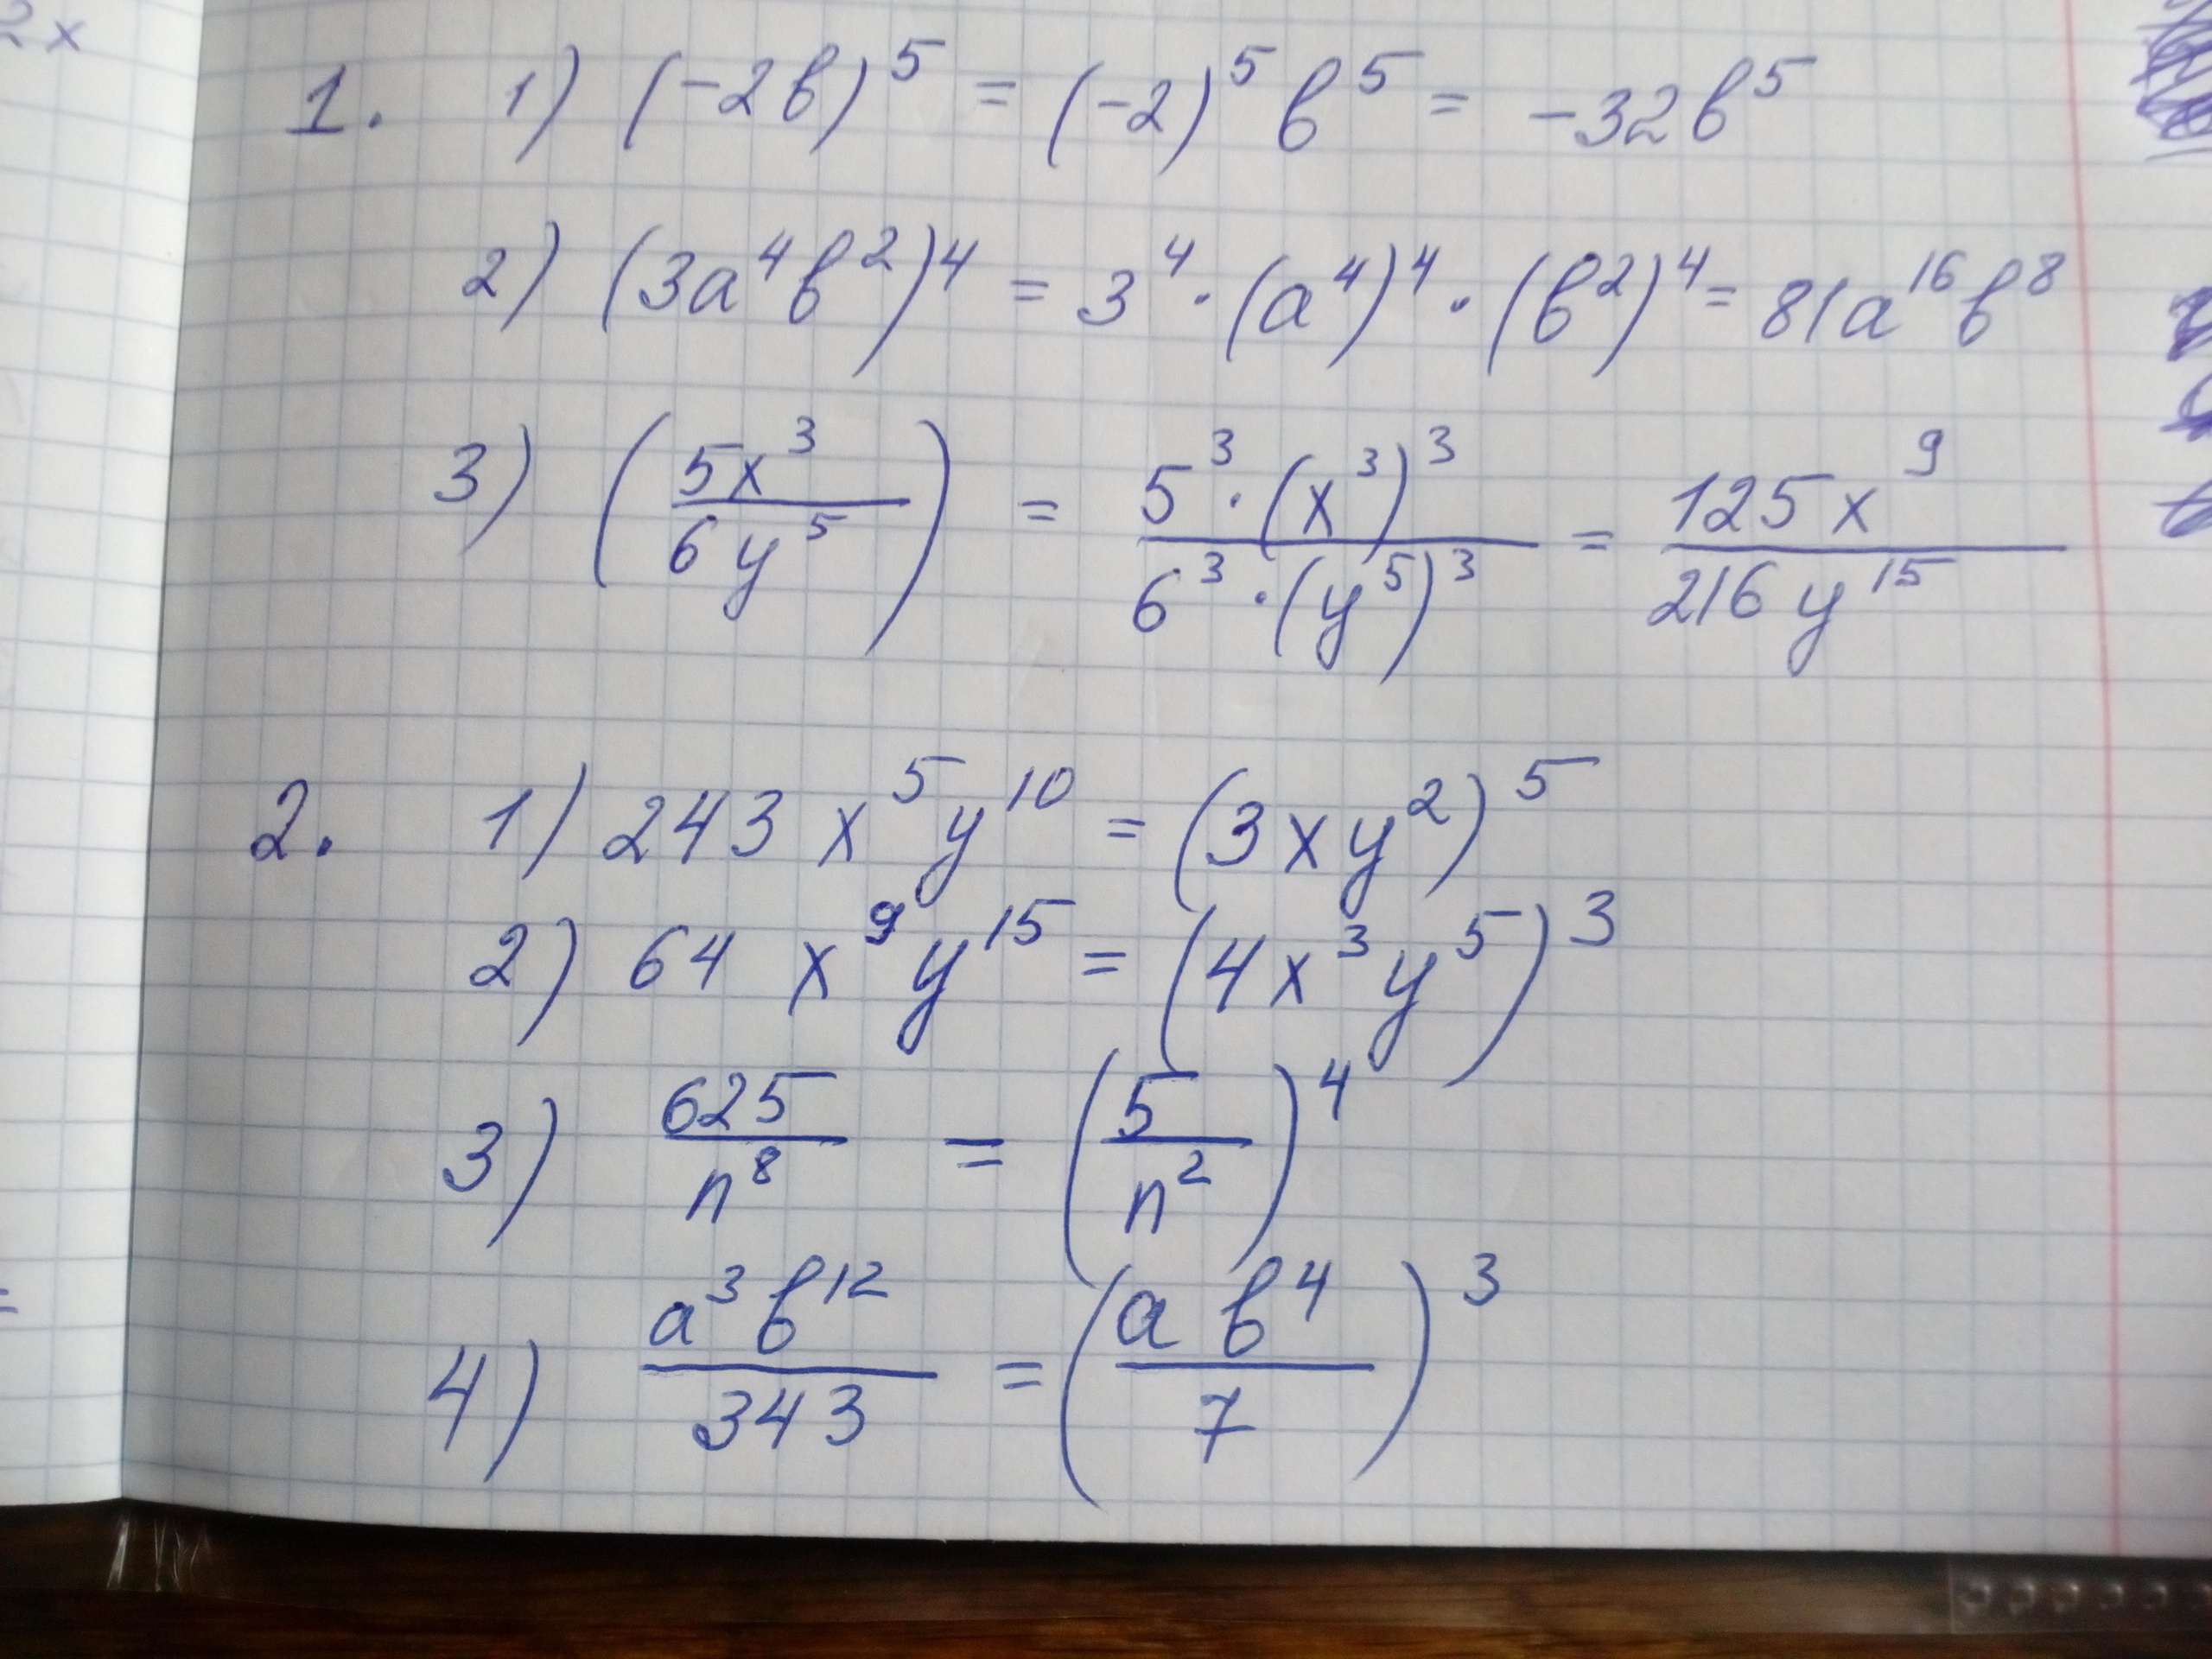 2x
1. 1) (-2в)⁵ = (-2)⁵ в⁵ = -32в⁵
2) (3a⁴в²)⁴ = 3⁴ · (a⁴)⁴ · (в²)⁴ = 81a¹⁶в⁸
3) (5x³/6y⁵) = 5³·(x³)³/6³·(y⁵)³ = 125x⁹/216y¹⁵
2. 1) 243x⁵y¹⁰ = (3xy²)⁵
2) 64x⁹y¹⁵ = (4x³y⁵)³
3) 625/n⁸ = (5/n²)⁴
4) a³в¹²/343 = (aв⁴/7)³
=